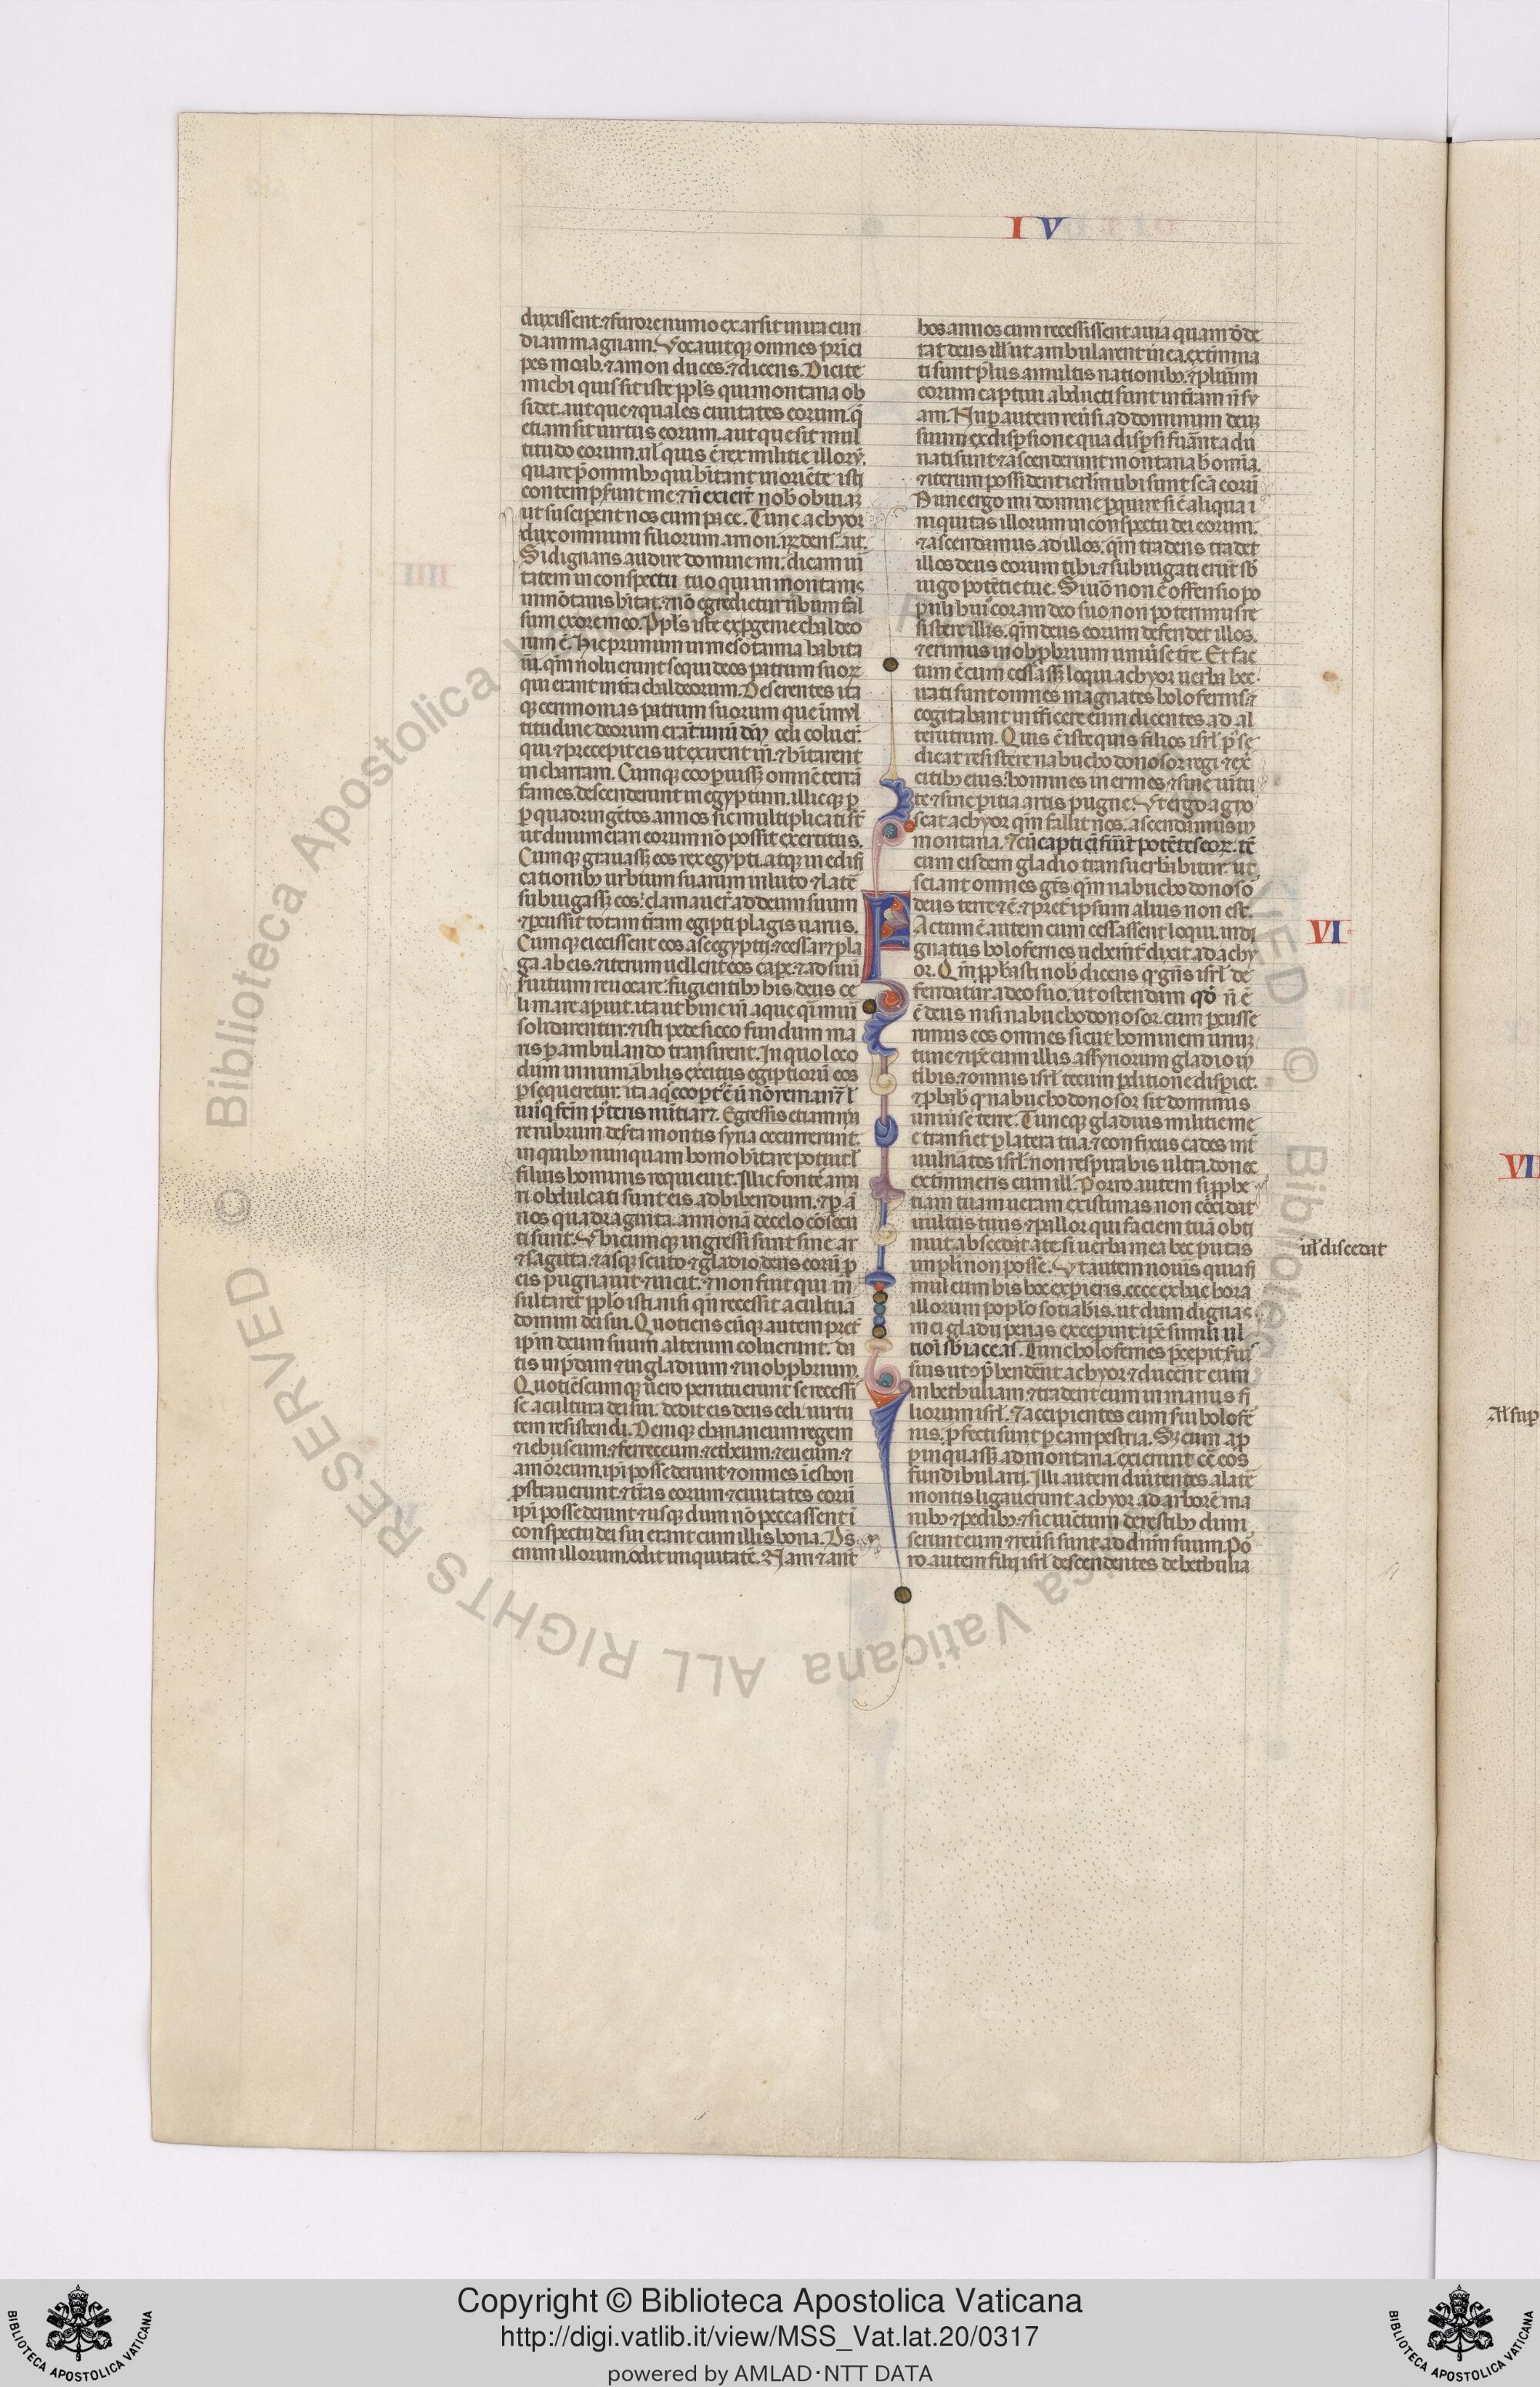 I V
duxissent. ⁊ furore nimio exarsit in iracun
diam magnam. Vocauitqꝫ omnes p̃nci
pes moab. ⁊ amon duces. ⁊ dicens. Dicite
michi quis sit iste ppl̃s qui montana ob
sidet. aut que ⁊ quales ciuitates eorum. q̃
etiam sit uirtus eorum. aut que sit mul
titudo eorum. ul̃ quis ẽ rex militie illoꝝ.
quare p̃ omnibꝫ qui hĩtant in oriẽte isti
contempserunt me. ⁊ ñ exierũt nob̃ obuiaꝫ
ut susciperent nos cum pace. Tunc achyor
dux omnium filiorum amon. r̃ndens. ait.
Si dignaris audire domine mi. dicam ũi
tatem in conspectu tuo qui in montanis
in mõtanis hĩtat. ⁊ nõ egredietur ũbum fal
sum ex ore meo. Ppl̃s iste ex ꝓgenie chaldeo
rum ẽ. Hic primum in mesotamia habita
uit. qm̃ noluerunt sequi deos patrum suoꝝ
qui erant in tr̃a chaldeorum. Deserentes ita
qꝫ cerimonias patrum suorum que in mul
titudine deorum erant. unũ dm̃ celi coluer̃.
qui ⁊ precepit eis ut exirent in̄. ⁊ hĩtarent
in charram. Cumqꝫ cooperuissꝫ omnẽ terrã
fames. descenderunt in egyptum. illicqꝫ ꝑ
ꝑ quadringẽtos annos sic multiplicati st̃
ut dinumerari eorum nõ possit exercitus.
Cumqꝫ grauassꝫ eos rex egypti. atqꝫ in edifi
cationibꝫ urbium suarum in luto ⁊ latẽ
subiugassꝫ eos. clamauer̃ ad deum suum
⁊ percussit totam tr̃am egipti plagis uariis.
Cumqꝫ eiecissent eos a se egyptii. ⁊ cessaret pla
ga ab eis. ⁊ iterum uellent eos capere. ⁊ ad suũ
seruitium reuocare. fugientibꝫ his deus ce
li mare aperuit. ita ut hinc in̄ aque q̃i muri
solidarentur. ⁊ isti pede sicco fundum ma
ris perambulando transirent. In quo loco
dum innumerabilis exercitus egiptiorũ eos
persequeretur. ita aq̃s coopertus ẽ ut nõ remaneret
Egressi etiam ma
re rubrum deserta montis syna occurrerunt.
in quibꝫ nunquam homo hĩtare potuit ul̃
filius hominis requieuit. Illic fontes ama
ri obdulcati sunt eis ad bibendum. ⁊ ꝑ an
nos quadraginta. annonã de celo cõsecu
ti sunt. Vbicumqꝫ ingressi sunt sine ar
⁊ sagitta. ⁊ absqꝫ scuto ⁊ gladio deus eorũ ꝓ
eis pugnauit ⁊ uicit. ⁊ non fuit qui in
sultaret ppl̃o isti. nisi qñ recessit a cultura
domini dei sui. Quotiens cũqꝫ autem preter
ip̃m deum suum alterum coluerunt. da
ti sunt in predam ⁊ in gladium ⁊ in obprobrium.
Quotiẽscumqꝫ uero penituerunt se recessi
se a cultura dei sui. dedit eis deus celi uirtu
tem resistendi. Deniqꝫ chananeum regem
⁊ iebuseum. ⁊ ferezeum. ⁊ etheum. ⁊ eueum. ⁊
amoreum. ip̃i possederunt ⁊ omnes i esbon
prostrauerunt. ⁊ tr̃as eorum ⁊ ciuitates eorũ
ip̃i possederunt ⁊ usqꝫ dum nõ peccassent i
conspectu dei sui erant cum illis bona. Ds
enim illorum. odit iniquitatẽ. Nam ⁊ ante
hos annos cum recessissent a uia quam dede
rat deus illis ut ambularent in ea. extermina
ti sunt preliis a multis nationibꝫ. ⁊ plurimi
eorum captiui abducti sunt in tr̃am ñ su
am. Nuper autem reuersi. ad dominum deuꝫ
suum ex dispersione qua dispersi fuerant adu
nati sunt ⁊ ascenderunt montana hec omĩa.
⁊ iterum possident ierl̃m ubi sunt sc̃a eorũ
Nunc ergo mi domine perquire si ẽ aliqua i
niquitas illorum in conspectu dei eorum.
⁊ ascendamus ad illos. qm̃ tradens tradet
illos deus eorum tibi. ⁊ subiugati erũt sb̃
iugo potẽtie tue. Si uõ non ẽ offensio po
puli huiꝰ coram deo suo. non poterimus re
sistere illis. qm̃ deus eorum defendet illos.
⁊ erimus in obprobrium uniuerse tr̃e. Et fac
tum ẽ cum cessassꝫ loqui achyor uerba hec.
irati sunt omnes magnates holofernis. ⁊
cogitabant interficere eum dicentes ad al
terutrum. Quis ẽ iste qui filios isrl̃ posse
dicat resistere nabuchodonosor regi ⁊ exer
citibꝫ eius. homines inermes ⁊ sine uirtu
te ⁊ sine peritia artis pugne. Vt ergo agno
scat achyor qm̃ fallit nos. ascendamus in
montana. ⁊ cũ capti fuerĩt potẽtes eoꝝ. tc̃
cum eisdem gladio transuerberabitur. ut
sciant omnes gẽs qm̃ nabuchodonosor
deus terre ẽ. ⁊ preter ipsum alius non est.
Factum ẽ autem cum cessassent loqui. indi
gnatus holofernes uehemẽter dixit ad achy
or. Qm̃ pphetasti nob̃ dicens q̃ gens isrl̃ de
fendatur a deo suo. ut ostendam tibi qm̃ ñ ẽ
ẽ deus nisi nabuchodonosor. cum percusse
rimus eos omnes sicut hominem unuꝫ
tunc ⁊ ip̃e cum illis assyriorum gladio in
tibis. ⁊ omnis isrl̃ tecum perditione disperiet.
⁊ probabis q̃ nabuchodonosor sit dominus
uniuerse terre. Tuncqꝫ gladius militie me
e transiet per latera tua. ⁊ confixus cades inter
uulneratos isrl̃. non respirabis ultra. donec
extermineris cum illis. Porro autem si pphe
tiam tuam ueram existimas non concidat
uultus tuus ⁊ pallor qui faciem tuã obti
nuit abscedat a te. si uerba mea hec putas
impleri non posse. Vt autem noueris quia si
mul cum his hec experieris. ecce ex hac hora
illorum populo sociaberis. ut dum dignas
mei gladii penas exceperint. ip̃e simili ul
tioni subiaceas. Tunc holofernes precepit seruis
suis ut comprehenderent achyor ⁊ ducerent eum
in bethuliam ⁊ traderent eum in manus fi
liorum isrl̃. ⁊ accipientes eum serui holofer
nis. profecti sunt per campestria. Sꝫ cum ap
pinquassꝫ ad montana. exierunt contra eos
fundibularii. Illi autem diuertentes a latere
montis ligauerunt achyor ad arborẽ ma
nibꝫ ⁊ pedibꝫ. ⁊ sic uinctum de restibꝫ dimi
serunt eum ⁊ reuersi sunt ad dñm suum. Por
ro autem filii isrl̃ descendentes de bethulia
VI
ul̃ discedat
VI
Al̃ sup
© Biblioteca Apostolica Vaticana ALL RIGHTS RESERVED
Copyright © Biblioteca Apostolica Vaticana
http://digi.vatlib.it/view/MSS_Vat.lat.20/0317
powered by AMLAD·NTT DATA
BIBLIOTECA APOSTOLICA VATICANA
BIBLIOTECA APOSTOLICA VATICANA